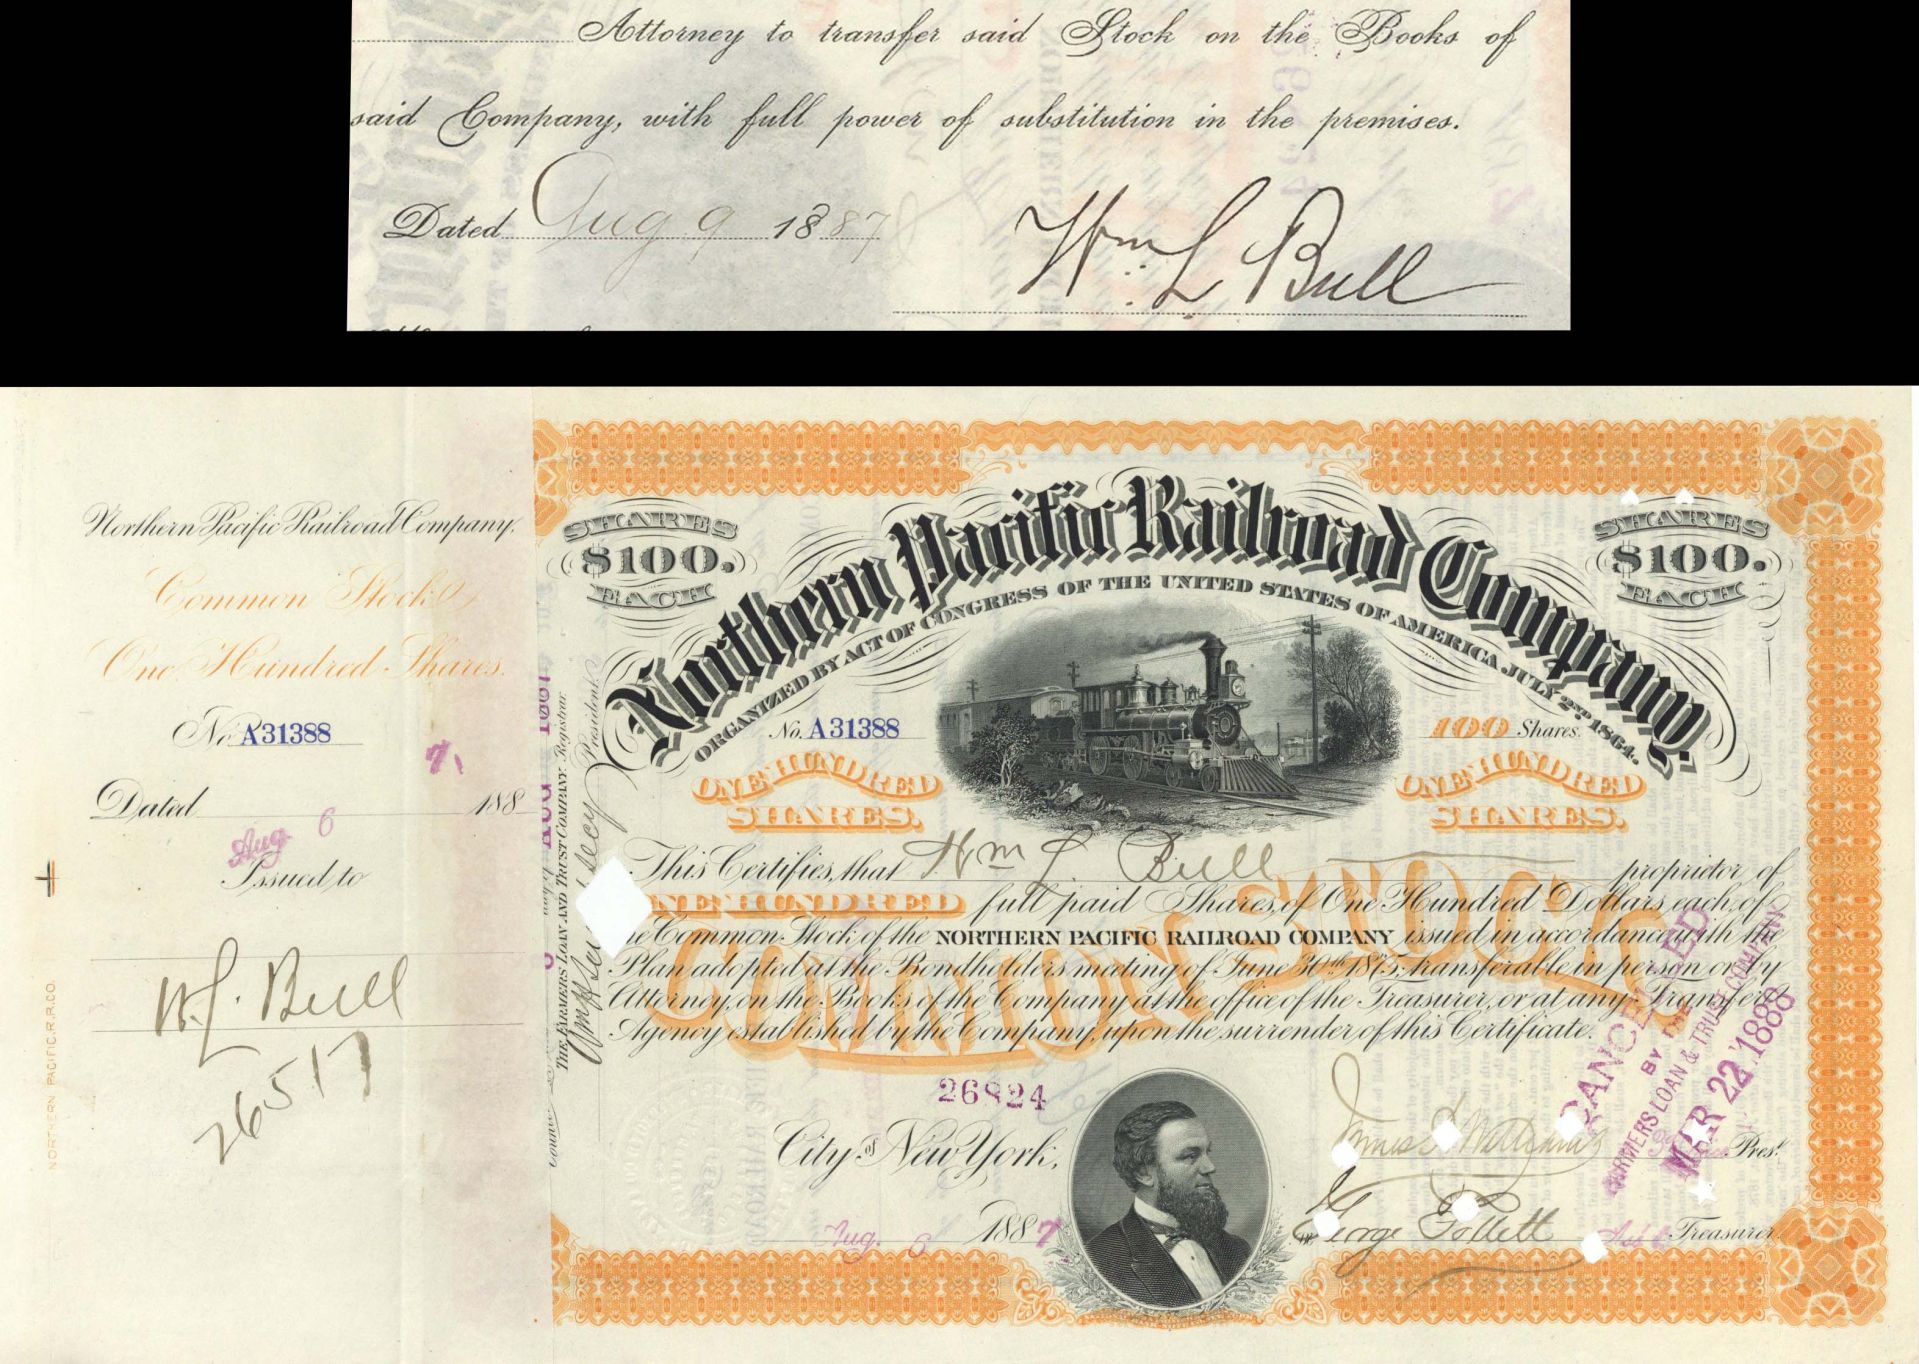 Attorney to transfer said Stock on the Books of
said Company, with full power of substitution in the premises.
Dated Aug 9 1887
Wm L Bull
Northern Pacific Railroad Company.
Common Stock
One Hundred Shares.
No. A31388
Dated Aug 6 1887.
Issued to
W L. Bull
26517
NORTHERN PACIFIC R.R.CO.
THE FARMERS LOAN AND TRUST COMPANY. Registrar.
President.
SHARES
$100.
EACH
SHARES
$100.
EACH
Northern Pacific Railroad Company.
ORGANIZED BY ACT OF CONGRESS OF THE UNITED STATES OF AMERICA, JULY 2ND 1864.
No. A31388
100 Shares.
ONE HUNDRED
SHARES.
ONE HUNDRED
SHARES.
This Certifies, that Wm L Bull proprietor of
ONE HUNDRED full paid Shares, of One Hundred Dollars each, of
the Common Stock, of the NORTHERN PACIFIC RAILROAD COMPANY issued in accordance with the
Plan adopted at the Bondholders meeting of June 30th 1875, transferable in person or by
Attorney, on the Books of the Company at the office of the Treasurer, or at any Transfer
Agency established by the Company, upon the surrender of this Certificate.
COMMON STOCK
26824
City of New York,
Aug. 6 1887.
James B Williams Prest.
George Follett Treasurer
CANCELLED
BY THE
FARMERS LOAN & TRUST COMPANY
MAR 22 1888